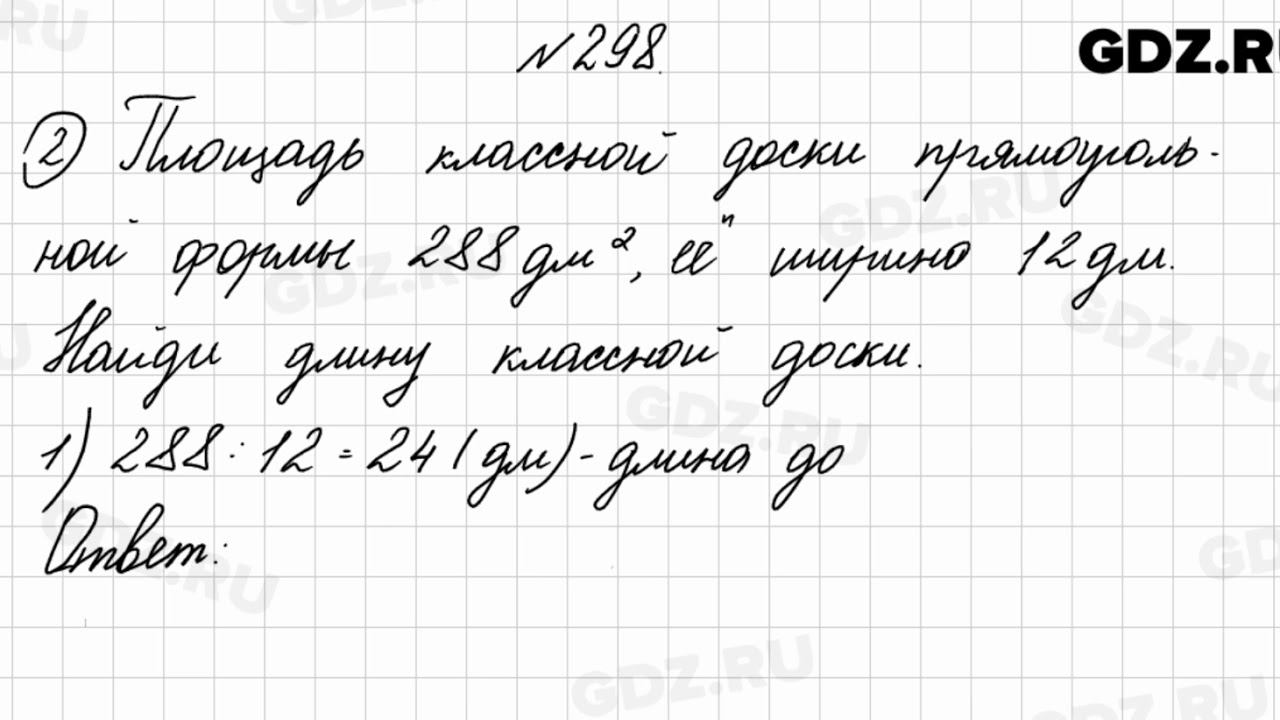 №298.
GDZ.RU
2) Площадь классной доски прямоуголь-
ной формы 288 дм², её ширина 12 дм.
Найди длину классной доски.
1) 288 : 12 = 24 (дм) - длина до
Ответ: